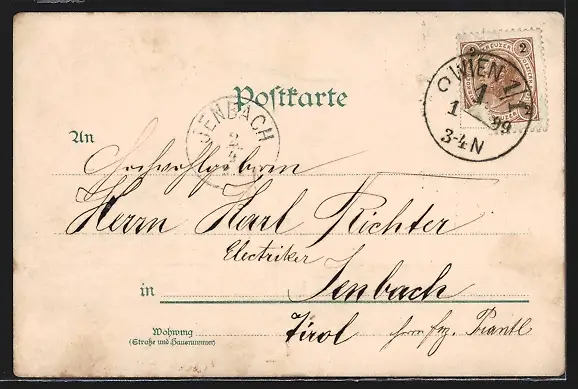 Postkarte
2 KREUZER 2
WIEN 1/1
1 4 99
3-4 N
JENBACH
An
Hochwohlgeboren
Herrn Karl Richter
Electriker
in Jenbach
Wohnung
(Straße und Hausnummer)
Tirol